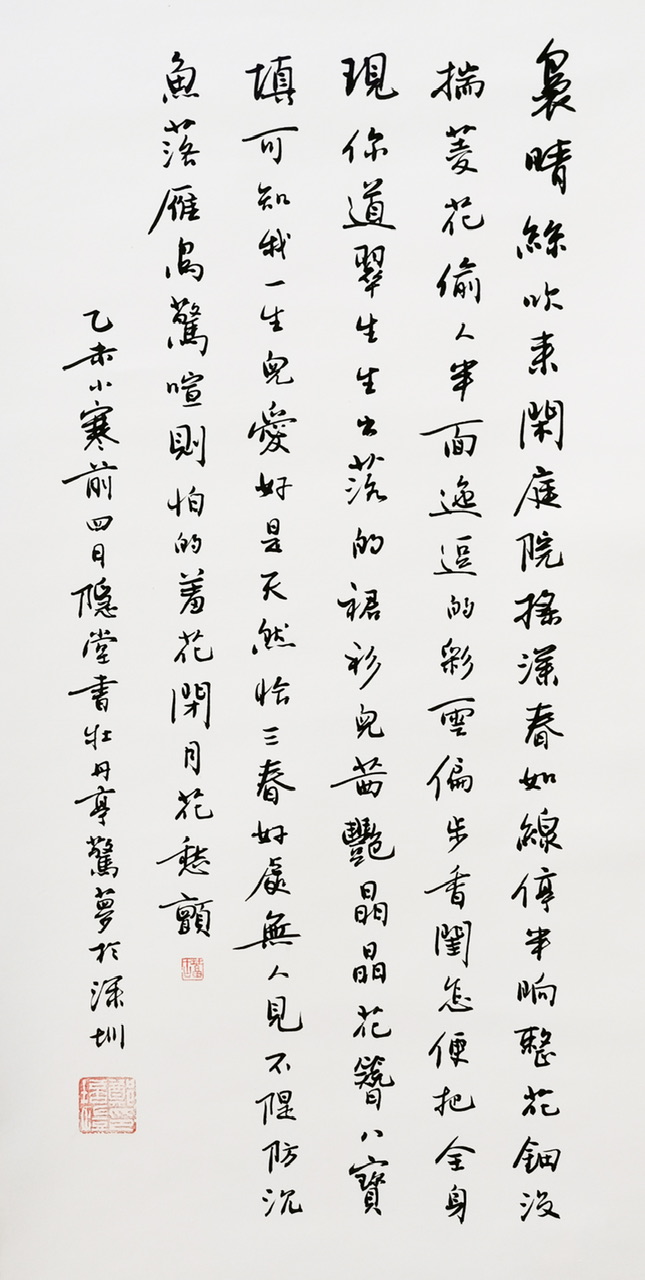 裊晴絲吹来閑庭院摇漾春如線停半晌整花鈿没
揣菱花偷人半面迤逗的彩雲偏步香閨怎便把全身
現你道翠生生出落的裙衫兒茜艷晶晶花簪八寶
填可知我一生兒愛好是天然恰三春好處無人見不隄防沉
魚落雁鳥驚喧則怕的羞花閉月花愁顫
乙未小寒前四日隱堂書牡丹亭驚夢於深圳